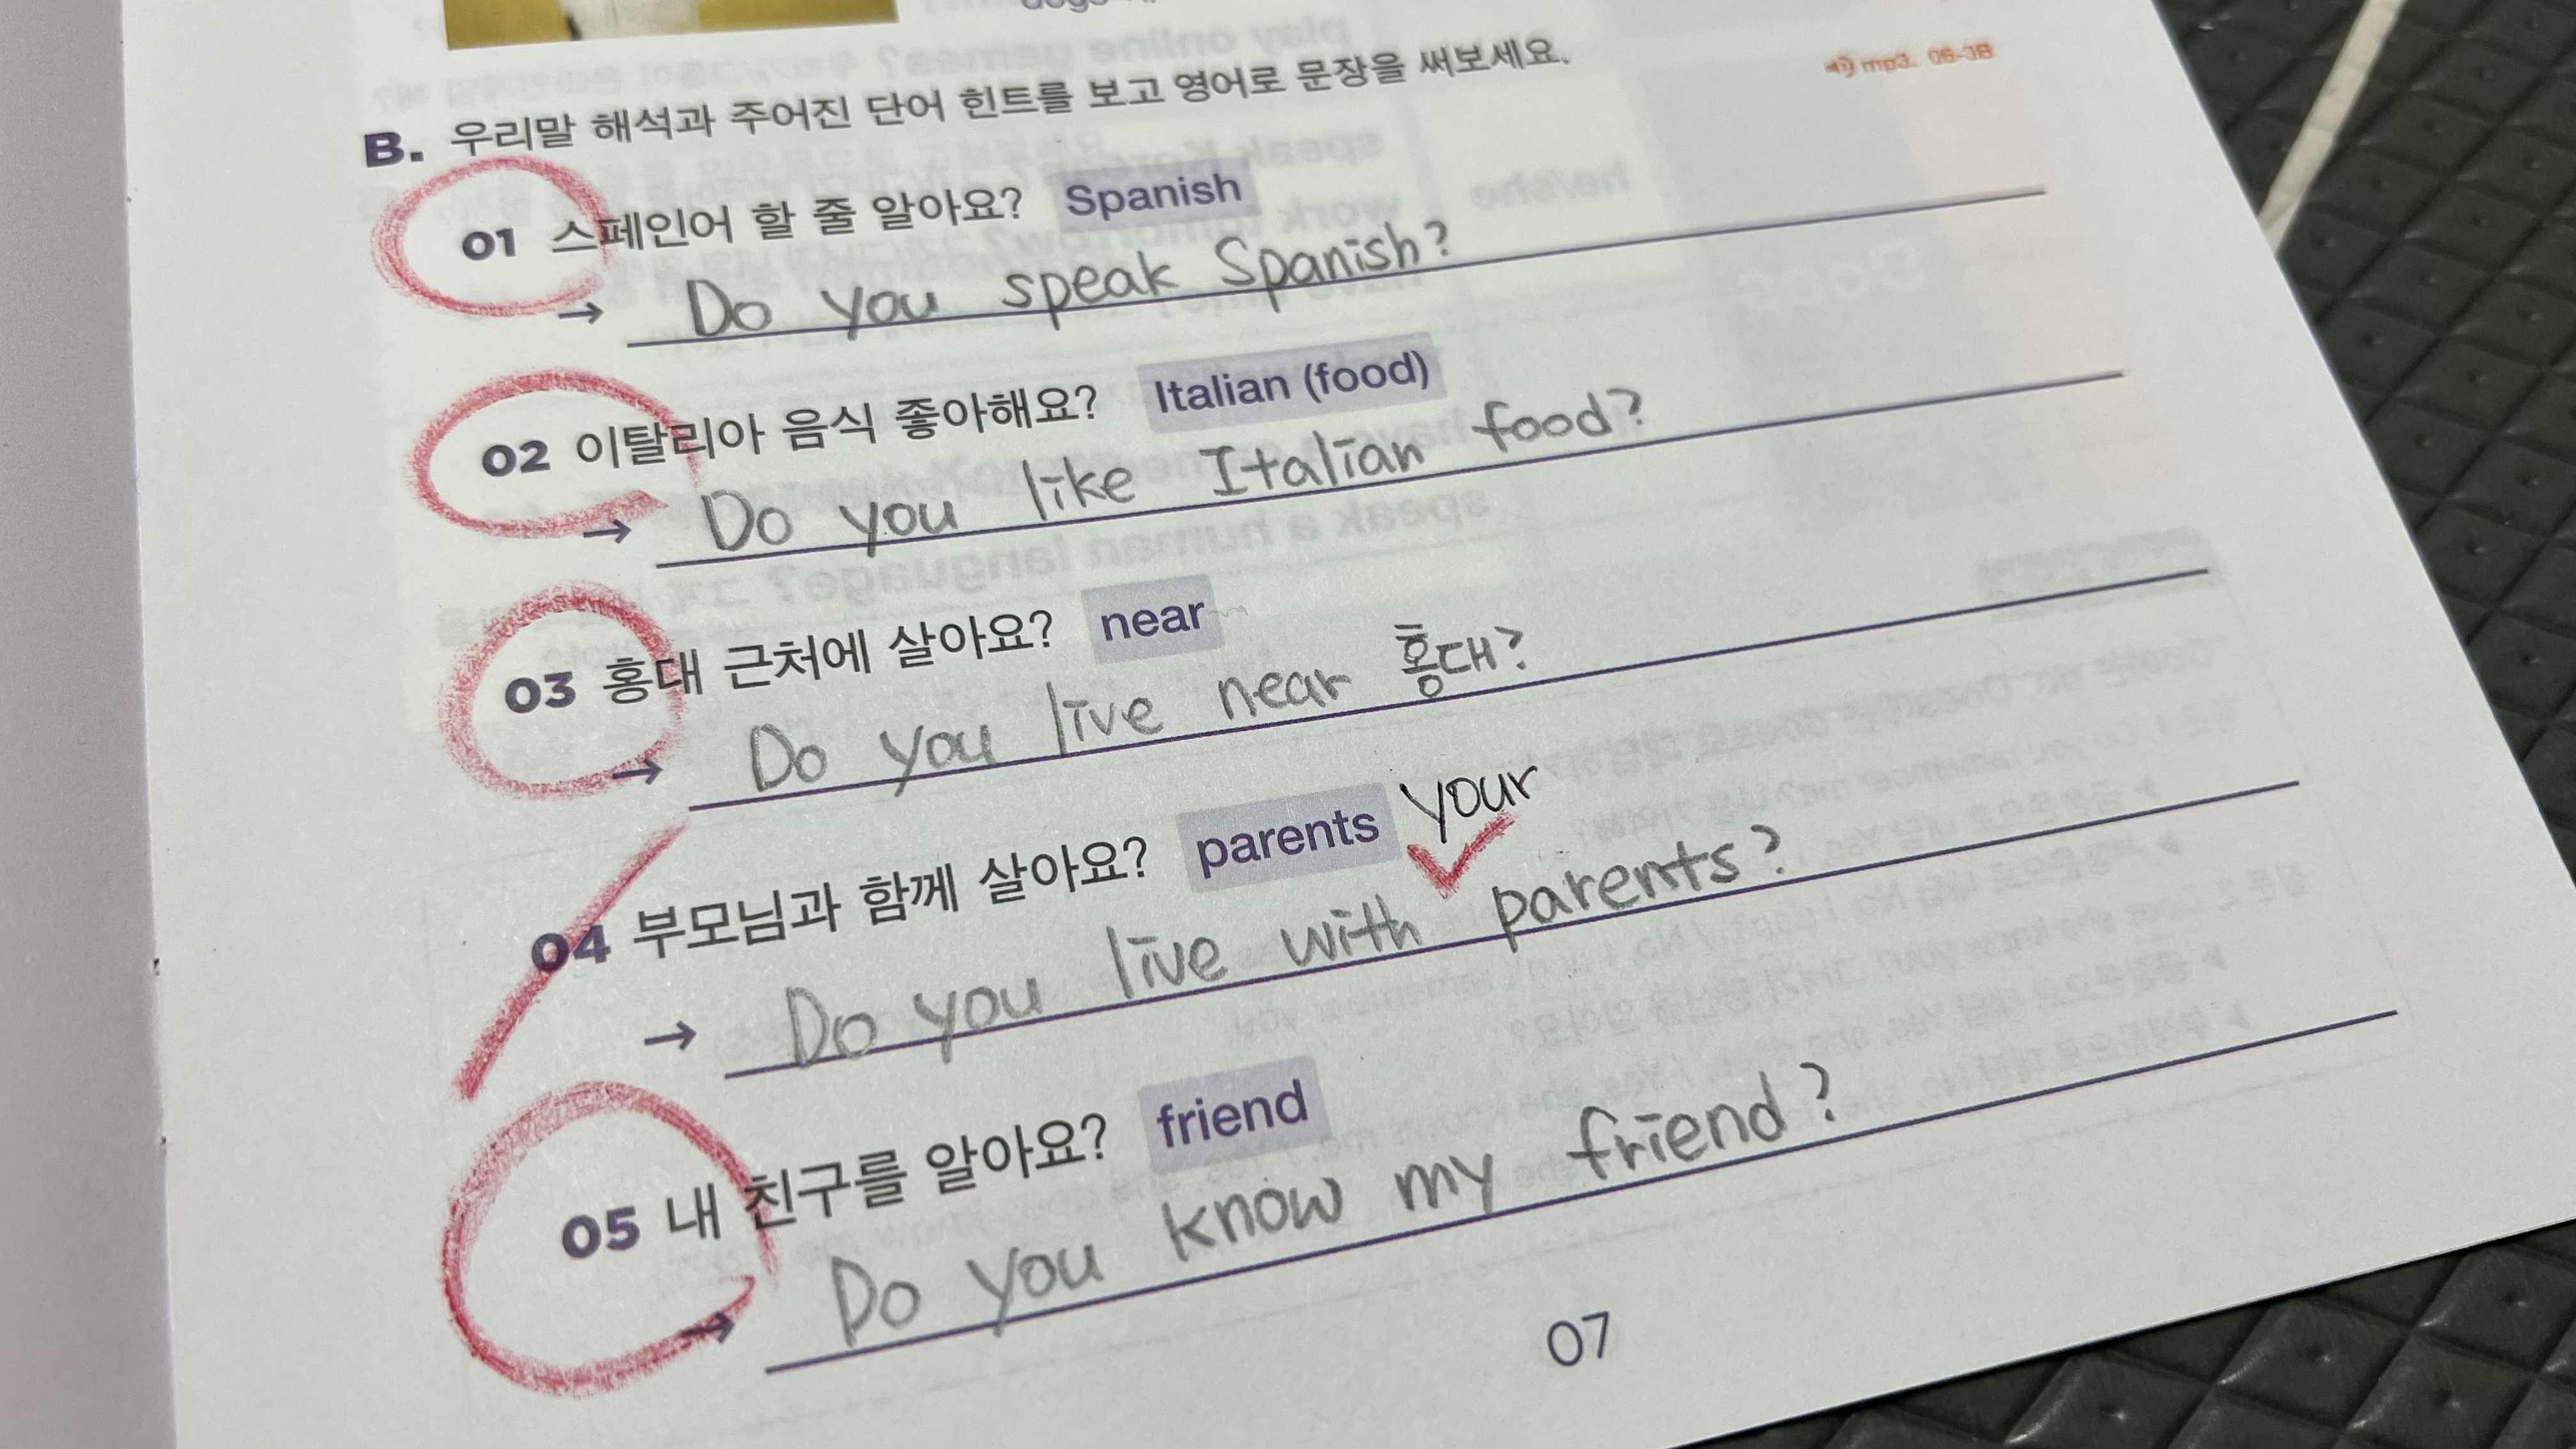 B. 우리말 해석과 주어진 단어 힌트를 보고 영어로 문장을 써보세요.
mp3. 06-3B
01 스페인어 할 줄 알아요? Spanish
→ Do you speak Spanish?
02 이탈리아 음식 좋아해요? Italian (food)
→ Do you like Italian food?
03 홍대 근처에 살아요? near
→ Do you live near 홍대?
04 부모님과 함께 살아요? parents
your
→ Do you live with parents?
05 내 친구를 알아요? friend
→ Do you know my friend?
07